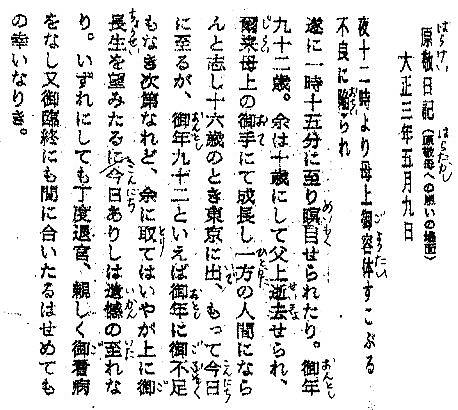 原敬日記（原敬母への思いの場面）
大正三年五月九日
夜十二時より母上御容体すこぶる
不良に陥られ
遂に一時十五分に至り瞑目せられたり。御年
九十二歳。余は十歳にして父上逝去せられ、
爾来母上の御手にて成長し一方の人間になら
んと志し十六歳のとき東京に出、もって今日
に至るが、御年九十二といえば御年に御不足
もなき次第なれど、余に取てはいやが上に御
長生を望みたるに今日ありしは遺憾の至れな
り。いずれにしても丁度退官、親しく御看病
をなし又御臨終にも間に合いたるはせめても
の幸いなりき。